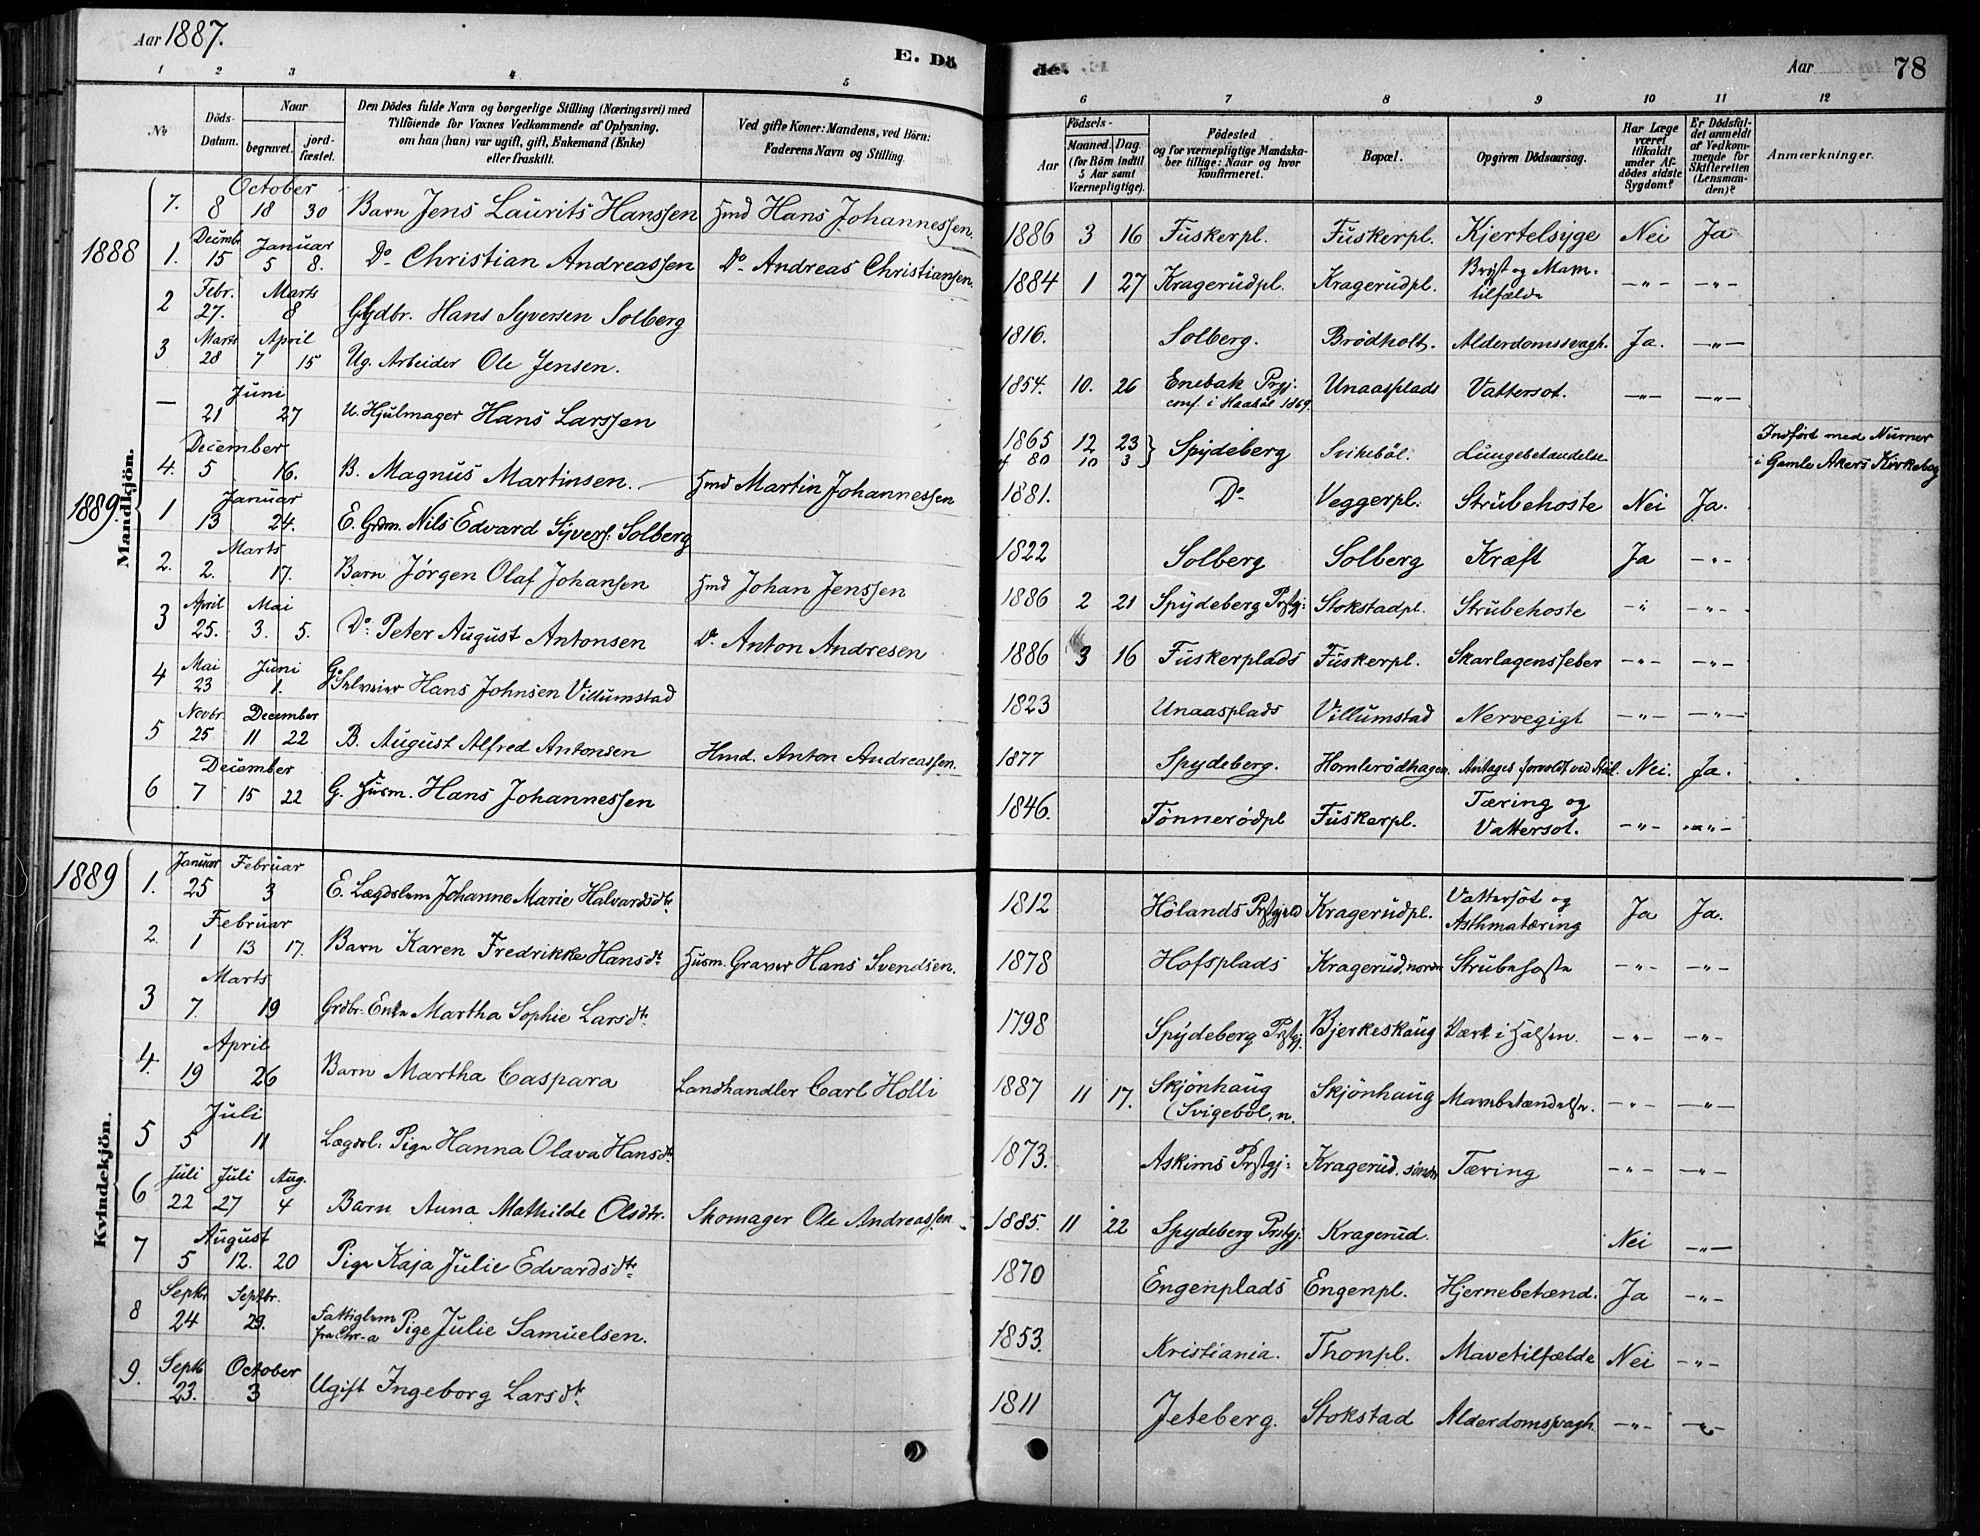 Aar 1887.
E. Dö
de.
Aar
78
1 2 3 4 5
6 7 8 9 10 11 12
No
Döds-Datum.
Naar
begravet.
jordfæstet.
Den Dödes fulde Navn og borgerlige Stilling (Næringsvei) med
Tilföiende for Voxnes Vedkommende af Oplysning,
om han (hun) var ugift, gift, Enkemand (Enke)
eller fraskilt.
Ved gifte Koner: Mandens, ved Börn:
Faderens Navn og Stilling.
Födsels-
Aar
Maaned. Dag.
(for Börn indtil
5 Aar samt
Værnepligtige).
Födested
og for værnepligtige Mandska-
ber tillige: Naar og hvor
konfirmeret.
Bopæl.
Opgiven Dödsaarsag.
Har Læge
været
tilkaldt
under Af-
dödes sidste
Sygdom?
Er Dödsfal-
det anmeldt
af Vedkom-
mende for
Skifteretten
(Lensman-
den)?
Anmærkninger.
Mandkjön.
October
7. 8 18 30 Barn Jens Laurits Hanssen Hmd Hans Johannessen. 1886 3 16 Fuskerpl. Fuskerpl. Kjertelsyge Nei Ja
1888
Decembr Januar
1. 15 5 8. Do Christian Andreassen Do Andreas Christiansen. 1884 1 27 Kragerudpl. Kragerudpl. Bryst og Mave-
tilfælde —"— —"—
Febr. Marts
2 27. 8 Ggdbr. Hans Syversen Solberg 1816. Solberg. Brödholt. Alderdomssvagh. Ja. —"—
Marts April
3 28 7 15 Ug. Arbeider Ole Jensen. 1854. 10. 26 Enebak Prgj:
conf. i Haabøl 1869. Unaasplads Vattersot. —"— —"—
Juni
— 21 27 U. Hjulmager Hans Larssen 1865 12 23
f 80 10 3 } Spydeberg Svikebøl. Lungebetændelse Indført med Numer
i Gamle Akers Kirkebog
December
4. 5 16. B. Magnus Martinsen. Hmd Martin Johannessen 1881. Do Veggerpl. Strubehoste Nei Ja.
1889.
Januar
1 13 24. E. Grdm. Nils Edvard Syvers. Solberg 1822 Solberg Solberg Kræft Ja —"—
Marts
2. 2. 17. Barn Jørgen Olaf Johansen Hmd Johan Jenssen 1886 2 21 Spydeberg Prstgj: Stokstadpl. Strubehoste —"— —"—
April Mai
3 25. 3. 5. Do Peter August Antonsen Do Anton Andresen 1886 3 16 Fuskerplads Fuskerpl. Skarlagensfeber —"— —"—
Mai Juni
4 23 1. G. Selveier Hans Johnsen Villumstad 1823 Unaasplads Villumstad Nervegigt —"— —"—
Novbr. December
5 25 11 22 B. August Alfred Antonsen Hmd. Anton Andreassen. 1877 Spydeberg. Homlerødhagen Antages forvoldt ved Nei. Ja.
December
6 7 15 22 G. Husm. Hans Johannessen 1846. Tønnerødpl Fuskerpl. Tæring og
Vattersot. —"— —"—
Kvindekjön.
1889
Januar Februar
1. 25 3 E. Lægdslem Johanne Marie Halvardsdtr. 1812 Hølands Prstgjeld Kragerudpl. Vattersot og
Asthmatæring Ja Ja.
Februar
2. 1 13 17. Barn Karen Fredrikke Hansdtr Husm. Graver Hans Svendsen. 1878 Hofsplads Kragerud, nordre Strubehoste —"— —"—
Marts
3 7. 19 Grdbr. Enke Martha Sophie Larsdtr. 1798 Spydeberg Prstgj. Bjerkeskaug Værk i Halsen. —"— —"—
April
4. 19 26 Barn Martha Caspara Landhandler Carl Holli 1887 11 17. Skjønhaug
(Svigebøl, n. Skjønhaug Mavebetændelse. —"— —"—
Juli
5 5 11 Lægdsl: Pige Hanna Olava Hansdtr. 1873. Askims Prstgj: Kragerud, søndre Tæring —"— —"—
Juli Juli Aug.
6 22 27 4 Barn Anna Mathilde Olsdtr. Skomager Ole Andreassen 1885. 11 22 Spydeberg Prstgj. Kragerud. Nei —"—
August
7 5 12. 20 Pige Kaja Julie Edvardsdtr 1870 Engenplads Engenpl. Hjernebetænd. Ja —"—
Septbr Septbr.
8 24 29. Fattiglem
fra Chr-a Pige Julie Samuelsen. 1853. Kristiania. Thonpl. Mavetilfælde Nei —"—
Septb October
9. 23. 3 Ugift Ingeborg Larsdtr. 1811 Jeteberg. Stokstad Alderdomssvagh. —"— —"—